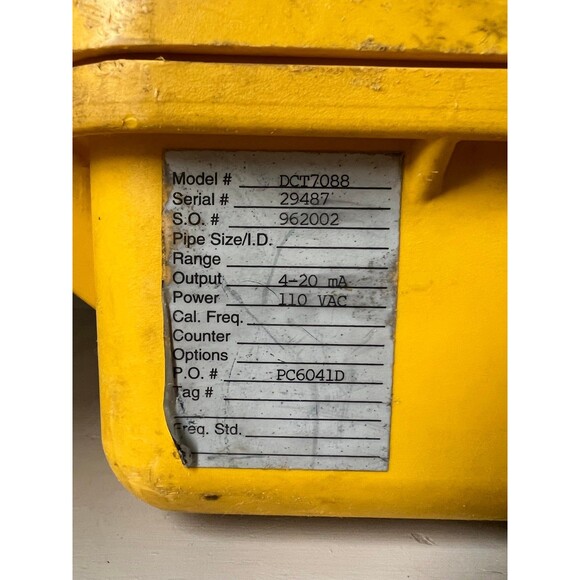 Model # DCT7088
Serial # 29487
S.O. # 962002
Pipe Size/I.D.
Range
Output 4-20 mA
Power 110 VAC
Cal. Freq.
Counter
Options
P.O. # PC6041D
Tag #
Freq. Std.